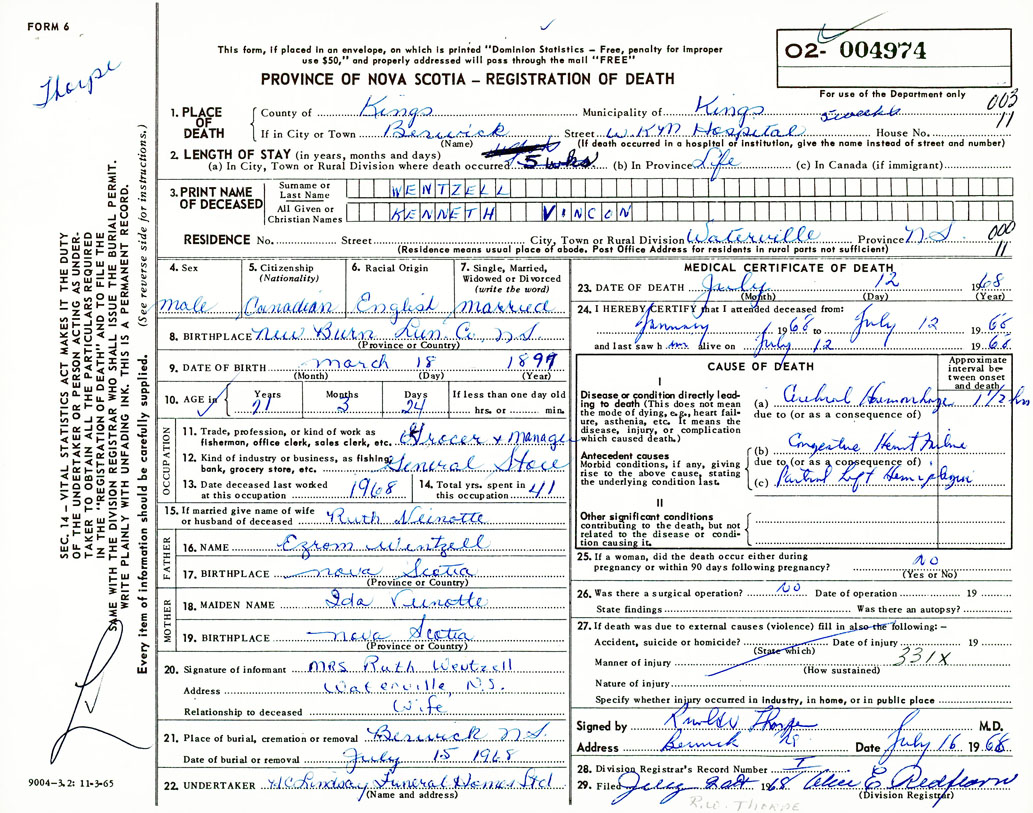 FORM 6
Thorpe
This form, if placed in an envelope, on which is printed "Dominion Statistics – Free, penalty for improper
use $50," and properly addressed will pass through the mail "FREE"
PROVINCE OF NOVA SCOTIA – REGISTRATION OF DEATH
O2- 004974
For use of the Department only
003
11
1. PLACE OF DEATH
County of Kings Municipality of Kings
5 weeks
If in City or Town Berwick Street W.K.M Hospital House No.
(Name) (If death occurred in a hospital or institution, give the name instead of street and number)
2. LENGTH OF STAY (in years, months and days)
(a) In City, Town or Rural Division where death occurred 5 wks (b) In Province Life (c) In Canada (if immigrant)
3. PRINT NAME OF DECEASED
Surname or Last Name WENTZELL
All Given or Christian Names KENNETH VINCON
RESIDENCE No. Street City, Town or Rural Division Waterville Province N.S.
(Residence means usual place of abode. Post Office Address for residents in rural parts not sufficient)
000
11
4. Sex
male
5. Citizenship (Nationality)
Canadian
6. Racial Origin
English
7. Single, Married, Widowed or Divorced (write the word)
married
8. BIRTHPLACE New Burn Lun. Co, N.S.
(Province or Country)
9. DATE OF BIRTH March 18 1897
(Month) (Day) (Year)
10. AGE in Years Months Days If less than one day old
71 3 24 hrs. or min.
OCCUPATION
11. Trade, profession, or kind of work as
fisherman, office clerk, sales clerk, etc. Grocer & Manager
12. Kind of industry or business, as fishing,
bank, grocery store, etc. General Store
13. Date deceased last worked
at this occupation 1968
14. Total yrs. spent in
this occupation 41
15. If married give name of wife
or husband of deceased Ruth
FATHER
16. NAME Ezrom Wentzell
17. BIRTHPLACE Nova Scotia
(Province or Country)
MOTHER
18. MAIDEN NAME Ida
19. BIRTHPLACE Nova Scotia
(Province or Country)
20. Signature of informant MRS Ruth Wentzell
Address Waterville, N.S.
Relationship to deceased Wife
21. Place of burial, cremation or removal Berwick N.S.
Date of burial or removal July 15 1968
22. UNDERTAKER Funeral Homes Ltd
(Name and address)
MEDICAL CERTIFICATE OF DEATH
23. DATE OF DEATH July 12 1968
(Month) (Day) (Year)
24. I HEREBY CERTIFY that I attended deceased from:
January 1968 to July 12 1968
and last saw him alive on July 12 1968
CAUSE OF DEATH
Approximate interval between onset and death
I
Disease or condition directly leading to death (This does not mean
the mode of dying, e.g., heart failure, asthenia, etc. It means the
disease, injury, or complication
which caused death.)
(a) Cerebral Haemorrhage 1 1/2 hrs
due to (or as a consequence of)
Antecedent causes
Morbid conditions, if any, giving
rise to the above cause, stating
the underlying condition last.
(b) Congestive Heart Failure
due to (or as a consequence of)
(c) Partial Left Hemiplegia
II
Other significant conditions
contributing to the death, but not
related to the disease or condition causing it.
25. If a woman, did the death occur either during
pregnancy or within 90 days following pregnancy? NO
(Yes or No)
26. Was there a surgical operation? NO Date of operation 19
State findings Was there an autopsy?
27. If death was due to external causes (violence) fill in also the following: –
Accident, suicide or homicide? Date of injury 19
(State which)
Manner of injury 331X
(How sustained)
Nature of injury
Specify whether injury occurred in industry, in home, or in public place
Signed by Thorpe M.D.
Address Berwick NS Date July 16 1968
28. Division Registrar's Record Number
29. Filed July 22nd 1968 Alice E Redfearn
(Division Registrar)
R.W. THORPE
SEC. 14 – VITAL STATISTICS ACT MAKES IT THE DUTY
OF THE UNDERTAKER OR PERSON ACTING AS UNDERTAKER TO OBTAIN ALL THE PARTICULARS REQUIRED
IN THE "REGISTRATION OF DEATH" AND TO FILE THE
SAME WITH THE DIVISION REGISTRAR WHO SHALL ISSUE THE BURIAL PERMIT.
WRITE PLAINLY WITH UNFADING INK. THIS IS A PERMANENT RECORD.
Every item of information should be carefully supplied. (See reverse side for instructions.)
9004-3.2: 11-3-65